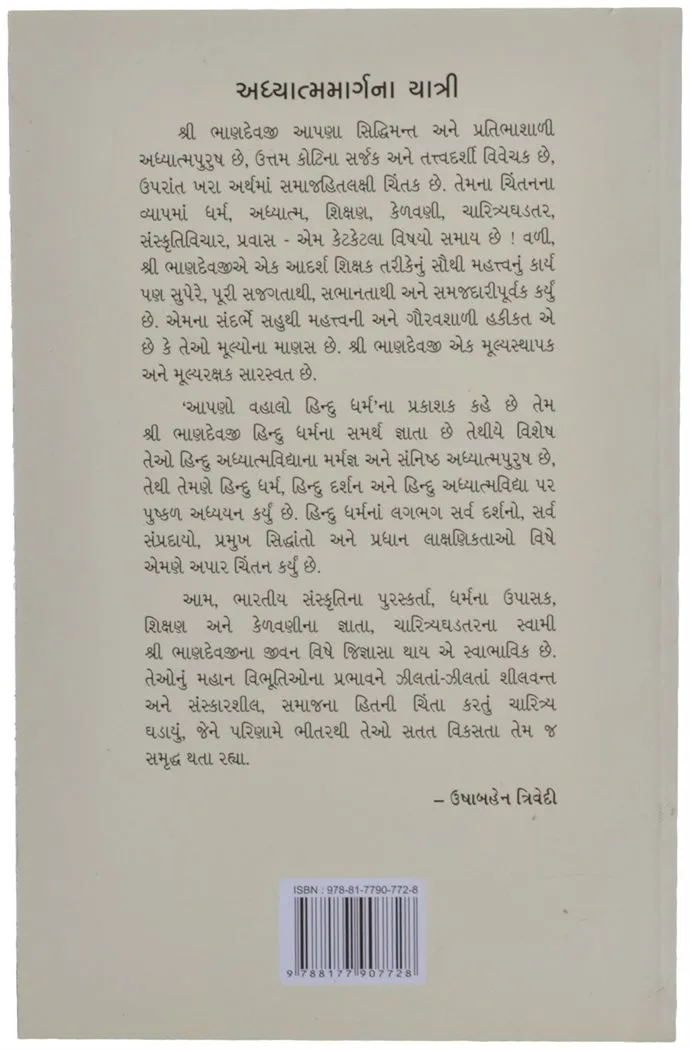 અધ્યાત્મમાર્ગના યાત્રી
શ્રી ભાણદેવજી આપણા સિદ્ધિમન્ત અને પ્રતિભાશાળી
અધ્યાત્મપુરુષ છે, ઉત્તમ કોટિના સર્જક અને તત્ત્વદર્શી વિવેચક છે,
ઉપરાંત ખરા અર્થમાં સમાજહિતલક્ષી ચિંતક છે. તેમના ચિંતનના
વ્યાપમાં ધર્મ, અધ્યાત્મ, શિક્ષણ, કેળવણી, ચારિત્ર્યઘડતર,
સંસ્કૃતિવિચાર, પ્રવાસ - એમ કેટકેટલા વિષયો સમાય છે ! વળી,
શ્રી ભાણદેવજીએ એક આદર્શ શિક્ષક તરીકેનું સૌથી મહત્ત્વનું કાર્ય
પણ સુપેરે, પૂરી સજગતાથી, સભાનતાથી અને સમજદારીપૂર્વક કર્યું
છે. એમના સંદર્ભે સહુથી મહત્ત્વની અને ગૌરવશાળી હકીકત એ
છે કે તેઓ મૂલ્યોના માણસ છે. શ્રી ભાણદેવજી એક મૂલ્યસ્થાપક
અને મૂલ્યરક્ષક સારસ્વત છે.
‘આપણો વહાલો હિન્દુ ધર્મ’ના પ્રકાશક કહે છે તેમ
શ્રી ભાણદેવજી હિન્દુ ધર્મના સમર્થ જ્ઞાતા છે તેથીયે વિશેષ
તેઓ હિન્દુ અધ્યાત્મવિદ્યાના મર્મજ્ઞ અને સંનિષ્ઠ અધ્યાત્મપુરુષ છે,
તેથી તેમણે હિન્દુ ધર્મ, હિન્દુ દર્શન અને હિન્દુ અધ્યાત્મવિદ્યા પર
પુષ્કળ અધ્યયન કર્યું છે. હિન્દુ ધર્મનાં લગભગ સર્વ દર્શનો, સર્વ
સંપ્રદાયો, પ્રમુખ સિદ્ધાંતો અને પ્રધાન લાક્ષણિકતાઓ વિષે
એમણે અપાર ચિંતન કર્યું છે.
આમ, ભારતીય સંસ્કૃતિના પુરસ્કર્તા, ધર્મના ઉપાસક,
શિક્ષણ અને કેળવણીના જ્ઞાતા, ચારિત્ર્યઘડતરના સ્વામી
શ્રી ભાણદેવજીના જીવન વિષે જિજ્ઞાસા થાય એ સ્વાભાવિક છે.
તેઓનું મહાન વિભૂતિઓના પ્રભાવને ઝીલતાં-ઝીલતાં શીલવન્ત
અને સંસ્કારશીલ, સમાજના હિતની ચિંતા કરતું ચારિત્ર્ય
ઘડાયું, જેને પરિણામે ભીતરથી તેઓ સતત વિકસતા તેમ જ
સમૃદ્ધ થતા રહ્યા.
– ઉષાબહેન ત્રિવેદી
ISBN : 978-81-7790-772-8
9 788177 907728